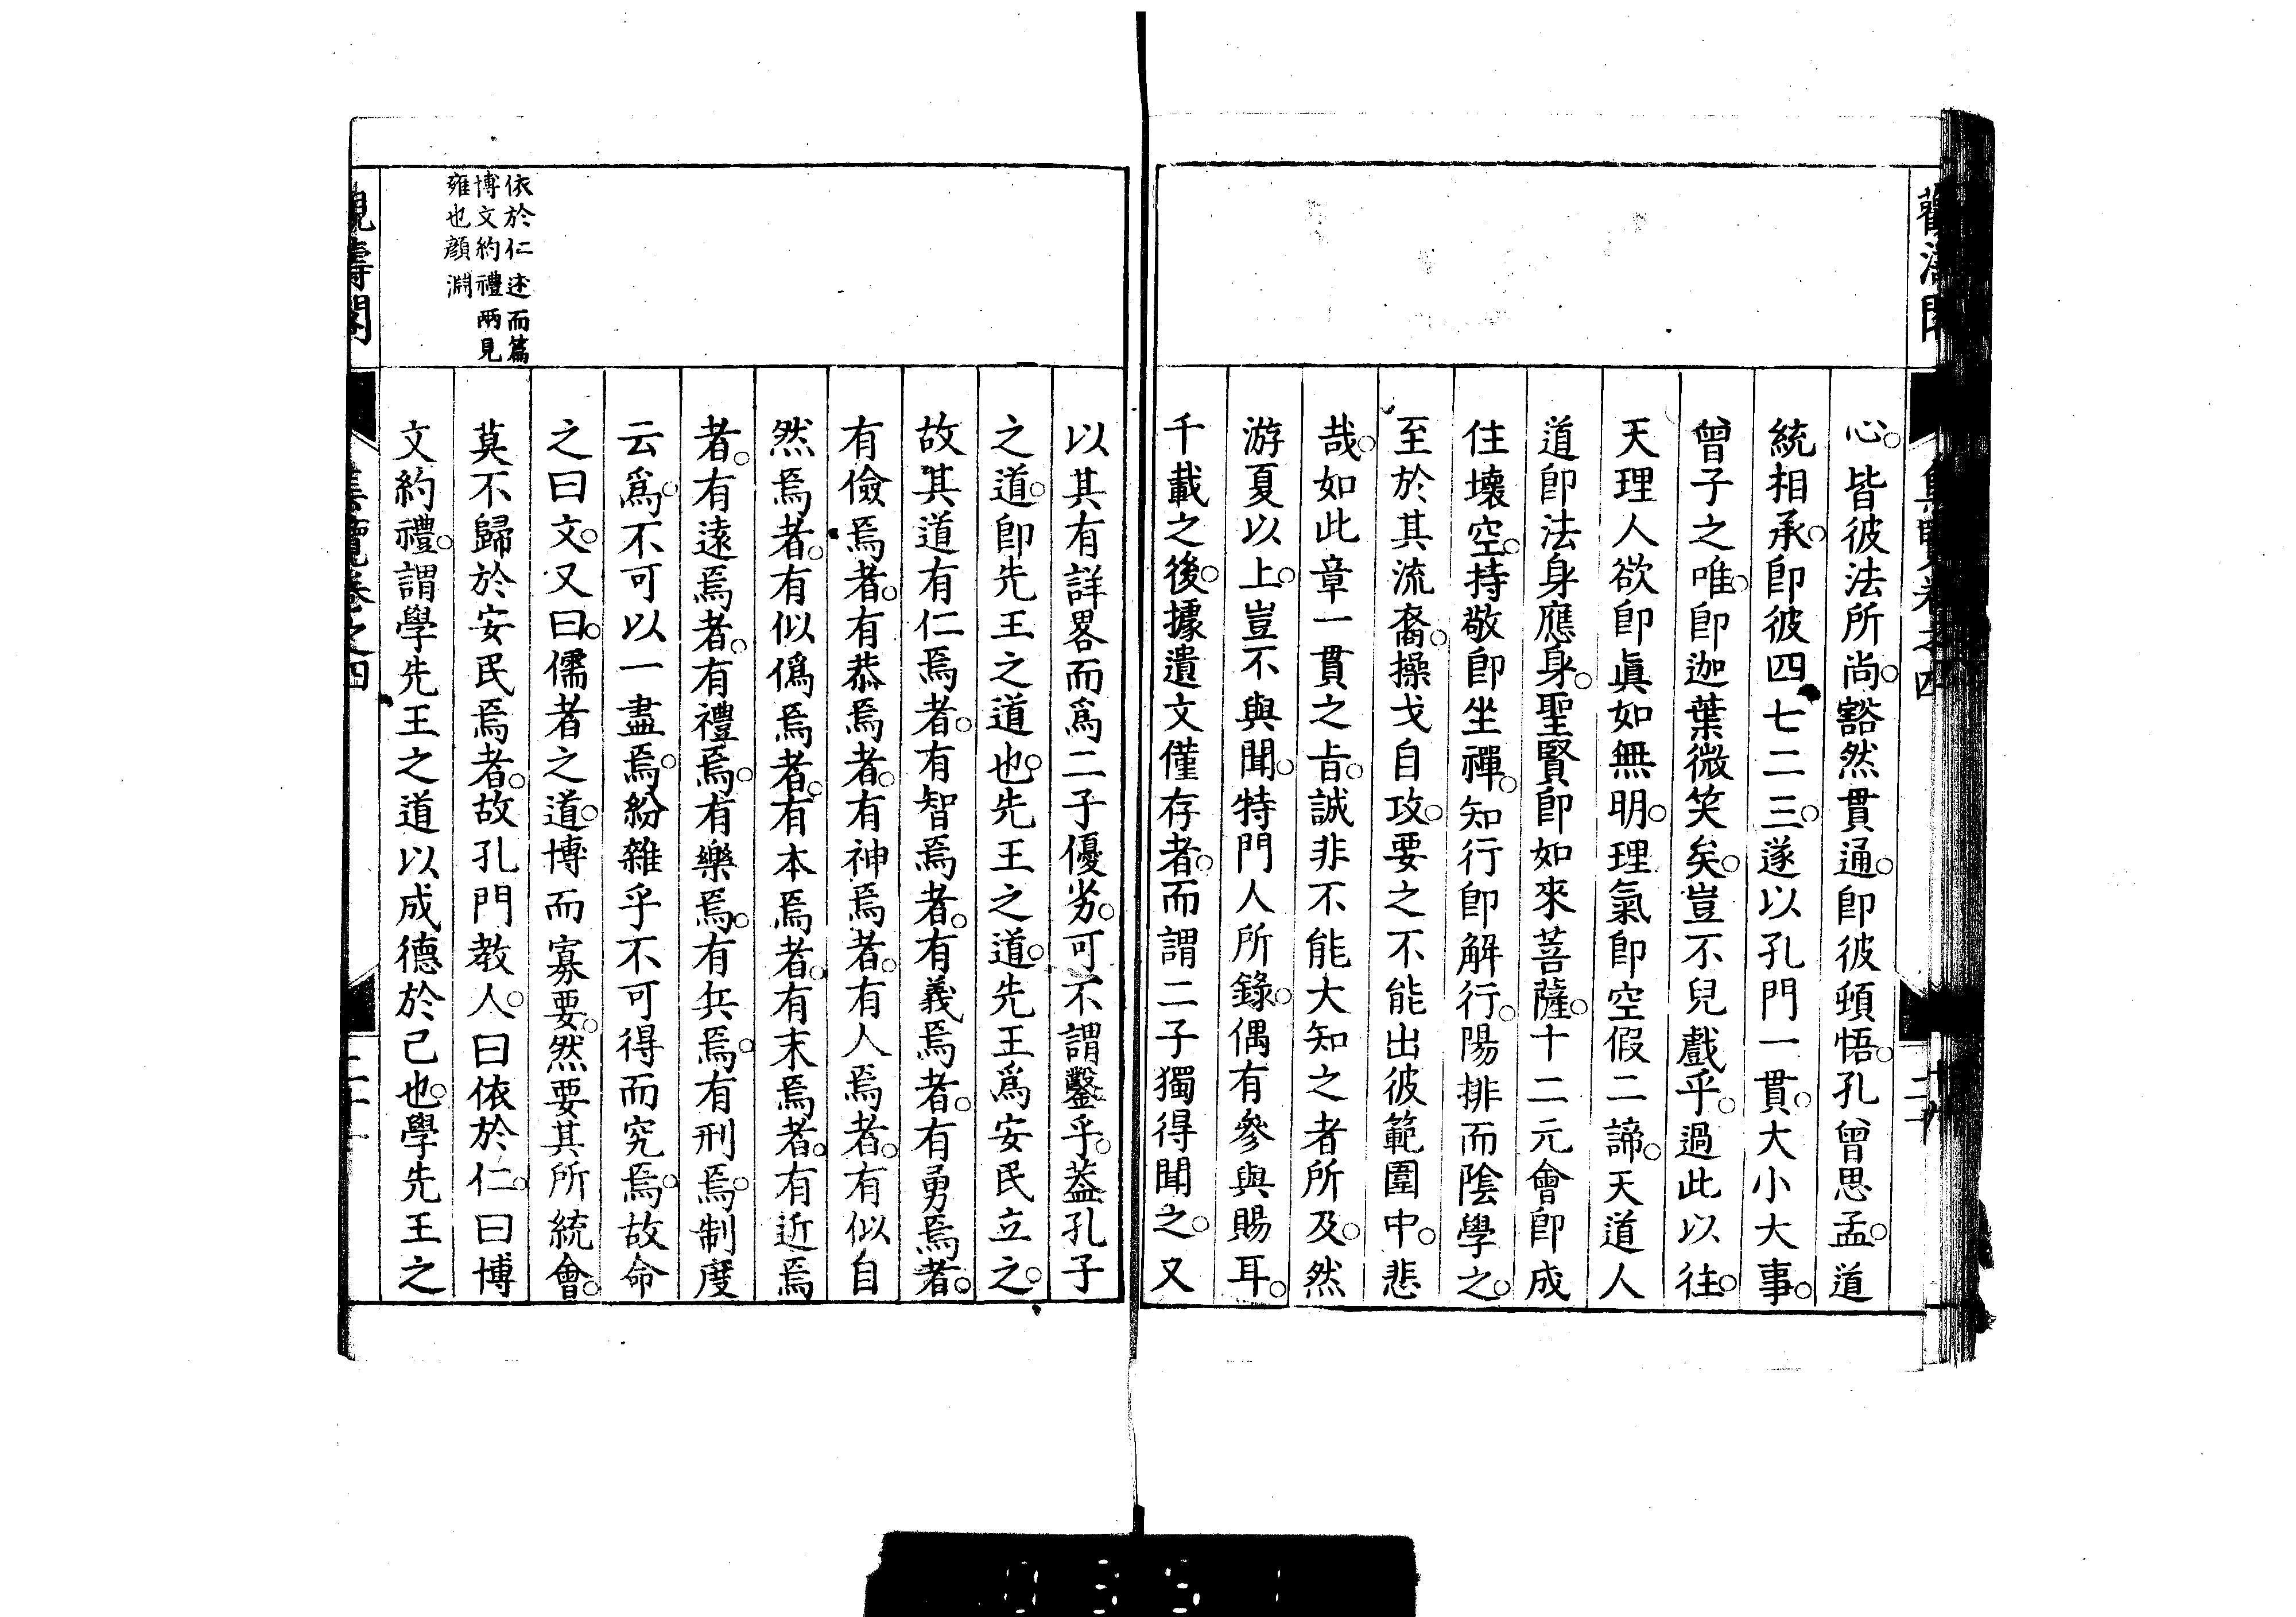 心。皆彼法所尚。豁然貫通。卽彼頓悟。孔曾思孟。道
統相承。卽彼四七二三。遂以孔門一貫。大小大事。
曾子之唯。卽迦葉微笑矣。豈不兒戲乎。過此以往。
天理人欲卽眞如無明。理氣卽空假二諦。天道人
道卽法身應身。聖賢卽如來菩薩。十二元會卽成
住壞空。持敬卽坐禪。知行卽解行。陽排而陰學之。
至於其流裔。操戈自攻。要之不能出彼範圍中。悲
哉。如此章一貫之旨。誠非不能大知之者所及。然
游夏以上。豈不與聞。特門人所錄。偶有參與賜耳。
千載之後。據遺文僅存者。而謂二子獨得聞之。又
以其有詳畧而爲二子優劣。可不謂鑿乎。葢孔子
之道。卽先王之道也。先王之道。先王爲安民立之。
故其道有仁焉者。有智焉者。有義焉者。有勇焉者。
有儉焉者。有恭焉者。有神焉者。有人焉者。有似自
然焉者。有似僞焉者。有本焉者。有末焉者。有近焉
者。有遠焉者。有禮焉。有樂焉。有兵焉。有刑焉。制度
云爲。不可以一盡焉。紛雜乎不可得而究焉。故命
之曰文。又曰。儒者之道。博而寡要。然要其所統會。
莫不歸於安民焉者。故孔門教人。曰依於仁。曰博
文約禮。謂學先王之道以成德於己也。學先王之
依於仁述而篇
博文約禮兩見
雍也顏淵
覽卷之四